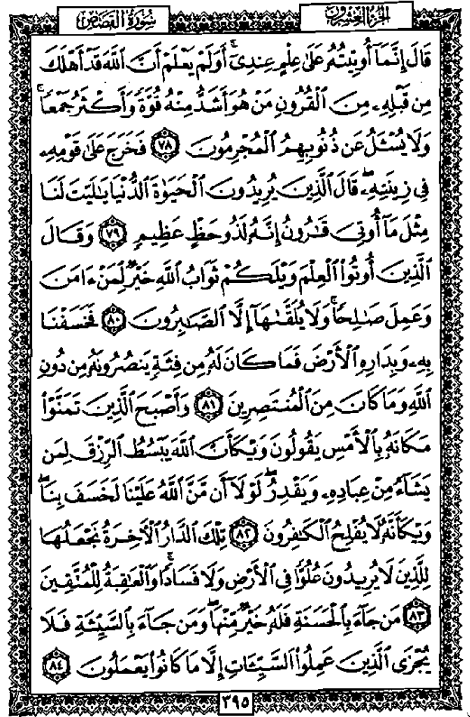 الجزء العشرون
سورة القصص
قَالَ إِنَّمَآ أُوتِيتُهُۥ عَلَىٰ عِلْمٍ عِندِىٓ ۚ أَوَلَمْ يَعْلَمْ أَنَّ ٱللَّهَ قَدْ أَهْلَكَ
مِن قَبْلِهِۦ مِنَ ٱلْقُرُونِ مَنْ هُوَ أَشَدُّ مِنْهُ قُوَّةً وَأَكْثَرُ جَمْعًا ۚ
وَلَا يُسْـَٔلُ عَن ذُنُوبِهِمُ ٱلْمُجْرِمُونَ ٧٨ فَخَرَجَ عَلَىٰ قَوْمِهِۦ
فِى زِينَتِهِۦ ۖ قَالَ ٱلَّذِينَ يُرِيدُونَ ٱلْحَيَوٰةَ ٱلدُّنْيَا يَٰلَيْتَ لَنَا
مِثْلَ مَآ أُوتِىَ قَٰرُونُ إِنَّهُۥ لَذُو حَظٍّ عَظِيمٍ ٧٩ وَقَالَ
ٱلَّذِينَ أُوتُوا۟ ٱلْعِلْمَ وَيْلَكُمْ ثَوَابُ ٱللَّهِ خَيْرٌ لِّمَنْ ءَامَنَ
وَعَمِلَ صَٰلِحًا ۚ وَلَا يُلَقَّىٰهَآ إِلَّا ٱلصَّٰبِرُونَ ٨٠ فَخَسَفْنَا
بِهِۦ وَبِدَارِهِ ٱلْأَرْضَ فَمَا كَانَ لَهُۥ مِن فِئَةٍ يَنصُرُونَهُۥ مِن دُونِ
ٱللَّهِ وَمَا كَانَ مِنَ ٱلْمُنتَصِرِينَ ٨١ وَأَصْبَحَ ٱلَّذِينَ تَمَنَّوْا۟
مَكَانَهُۥ بِٱلْأَمْسِ يَقُولُونَ وَيْكَأَنَّ ٱللَّهَ يَبْسُطُ ٱلرِّزْقَ لِمَن
يَشَآءُ مِنْ عِبَادِهِۦ وَيَقْدِرُ ۖ لَوْلَآ أَن مَّنَّ ٱللَّهُ عَلَيْنَا لَخَسَفَ بِنَا ۖ
وَيْكَأَنَّهُۥ لَا يُفْلِحُ ٱلْكَٰفِرُونَ ٨٢ تِلْكَ ٱلدَّارُ ٱلْءَاخِرَةُ نَجْعَلُهَا
لِلَّذِينَ لَا يُرِيدُونَ عُلُوًّا فِى ٱلْأَرْضِ وَلَا فَسَادًا ۚ وَٱلْعَٰقِبَةُ لِلْمُتَّقِينَ
٨٣ مَن جَآءَ بِٱلْحَسَنَةِ فَلَهُۥ خَيْرٌ مِّنْهَا ۖ وَمَن جَآءَ بِٱلسَّيِّئَةِ فَلَا
يُجْزَى ٱلَّذِينَ عَمِلُوا۟ ٱلسَّيِّـَٔاتِ إِلَّا مَا كَانُوا۟ يَعْمَلُونَ ٨٤
٣٩٥